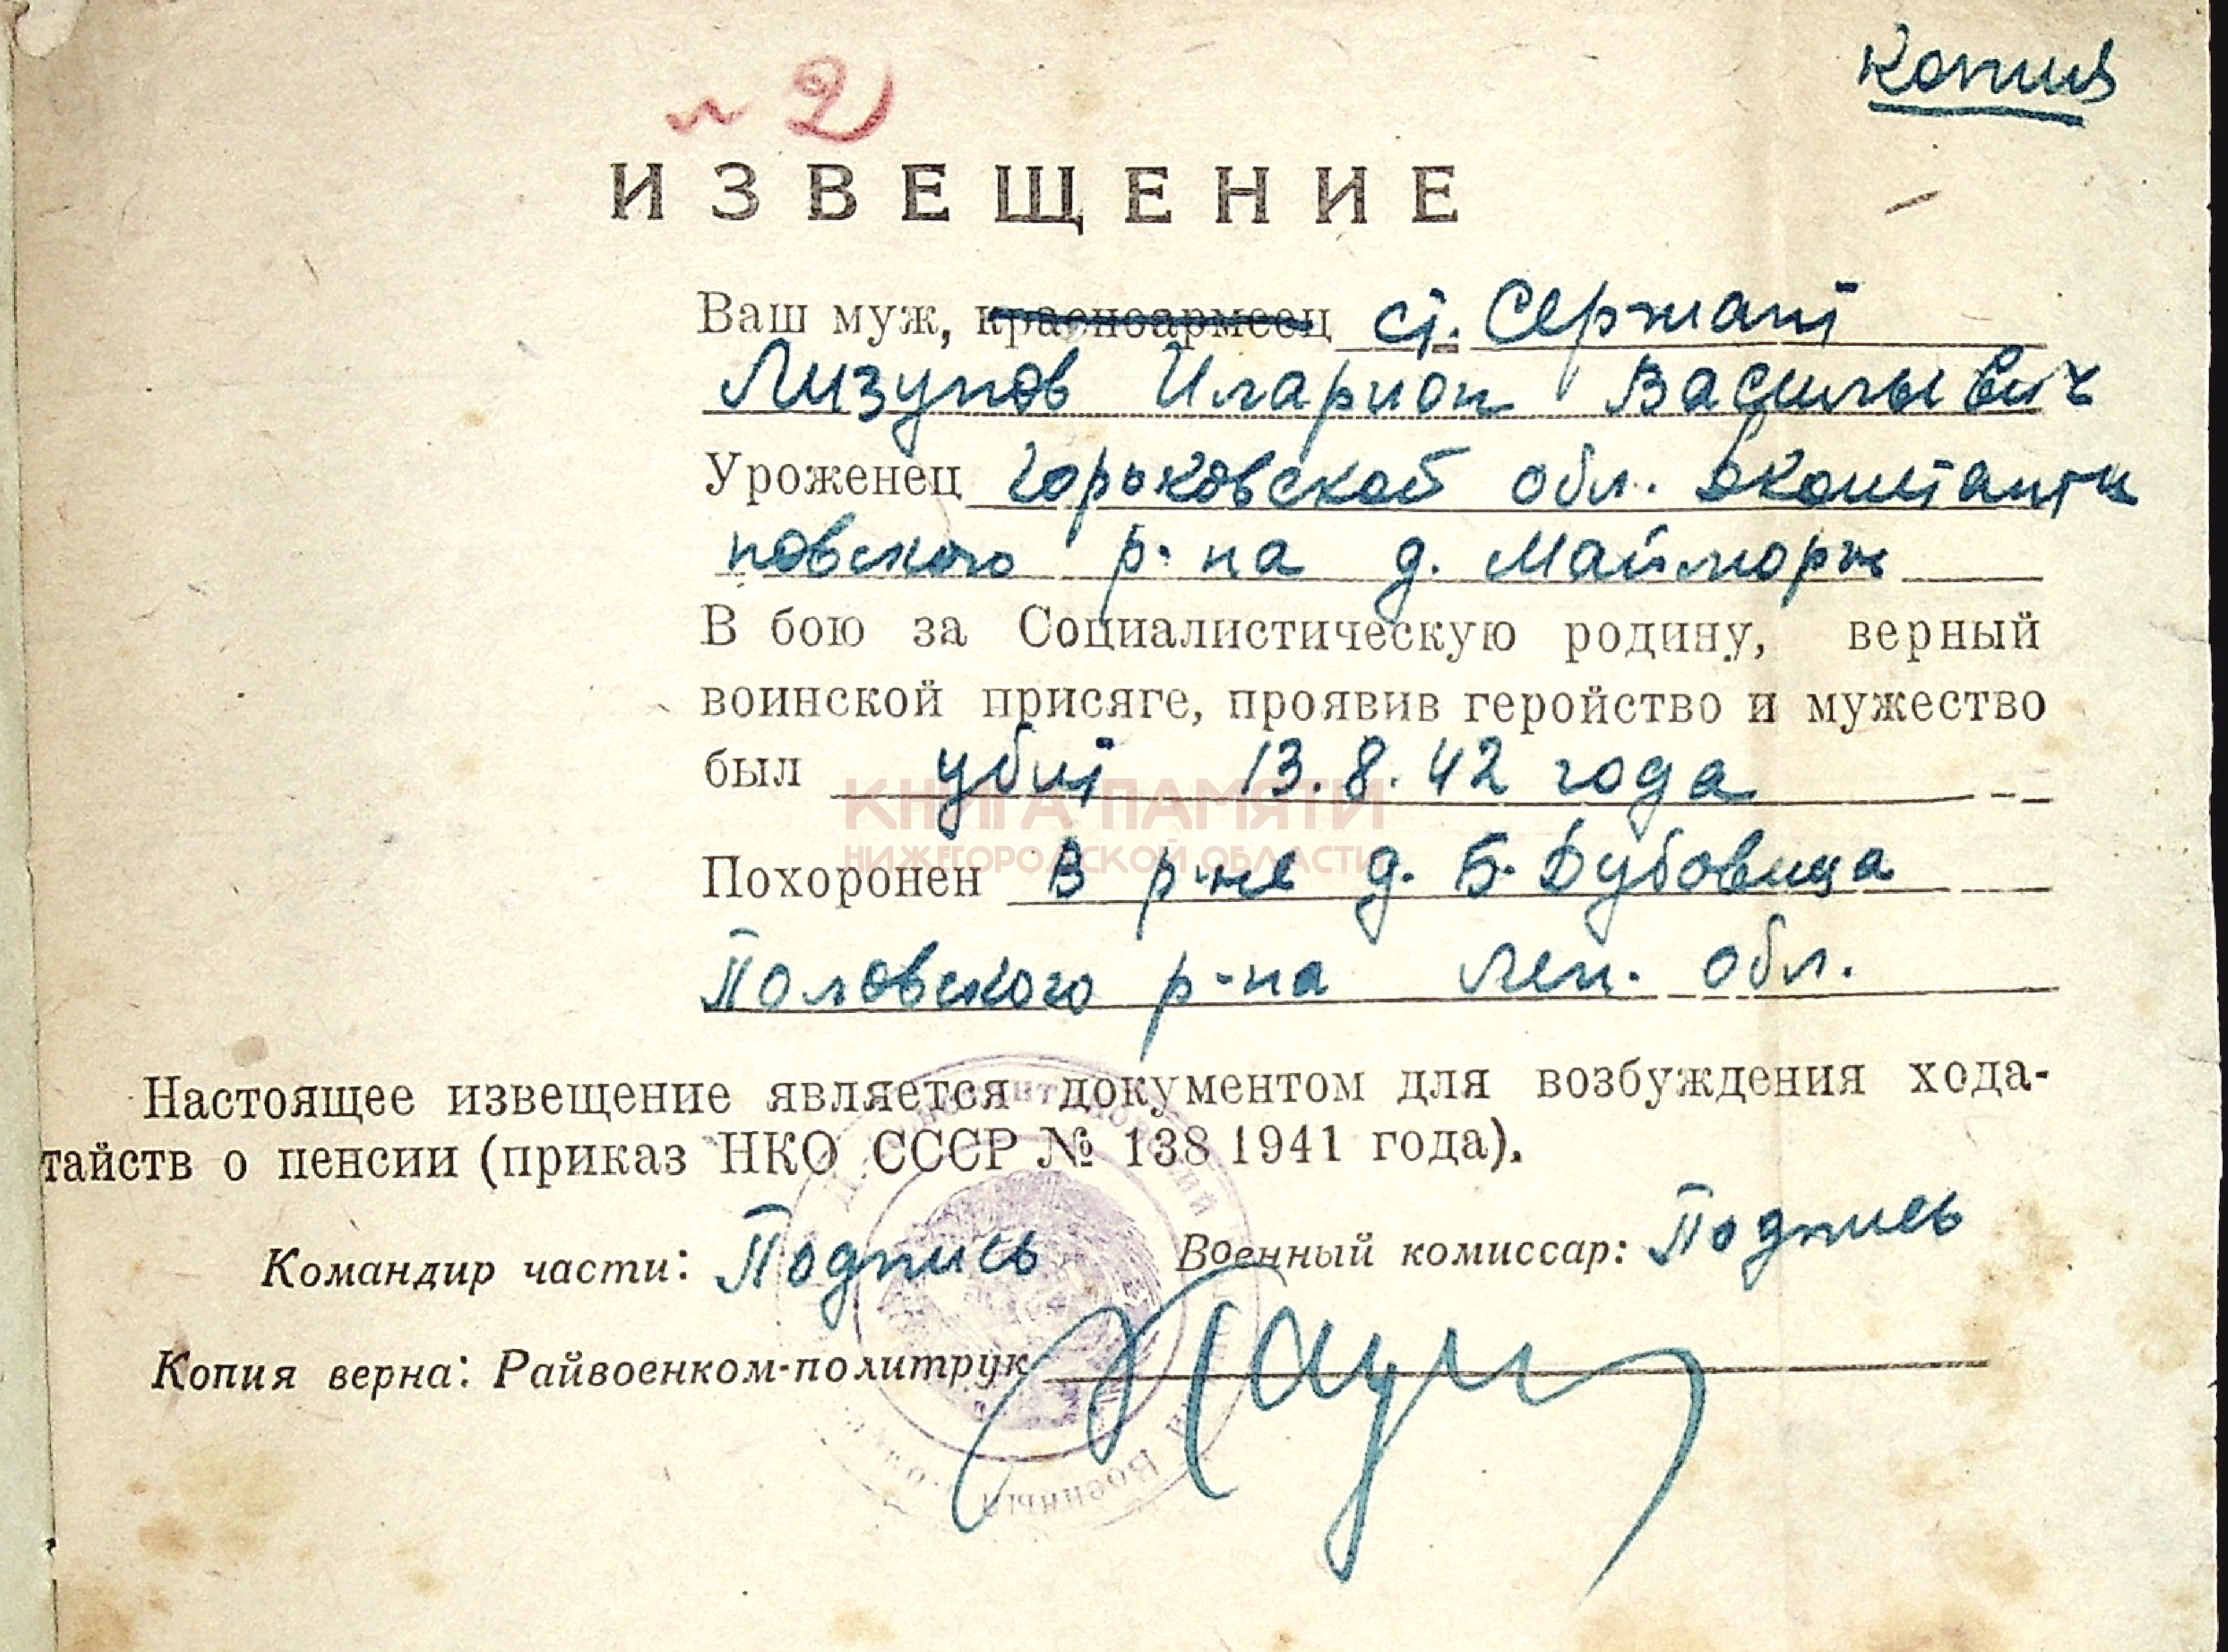 Копия
№ 2
ИЗВЕЩЕНИЕ
Ваш муж, красноармеец ст. Сержант
Лизунов Иларион Васильевич
Уроженец Горьковской обл. Дконстанти
новского р-на д. Майморж
В бою за Социалистическую родину, верный
воинской присяге, проявив геройство и мужество
был убит 13.8.42 года
КНИГА ПАМЯТИ
НИЖЕГОРОДСКОЙ ОБЛАСТИ
Похоронен в р-не д. Б. Дубовица
Половского р-на Лен. обл.
Настоящее извещение является документом для возбуждения хода-
тайств о пенсии (приказ НКО СССР № 138 1941 года).
Командир части: Подпись Военный комиссар: Подпись
Копия верна: Райвоенком-политрук
Военный